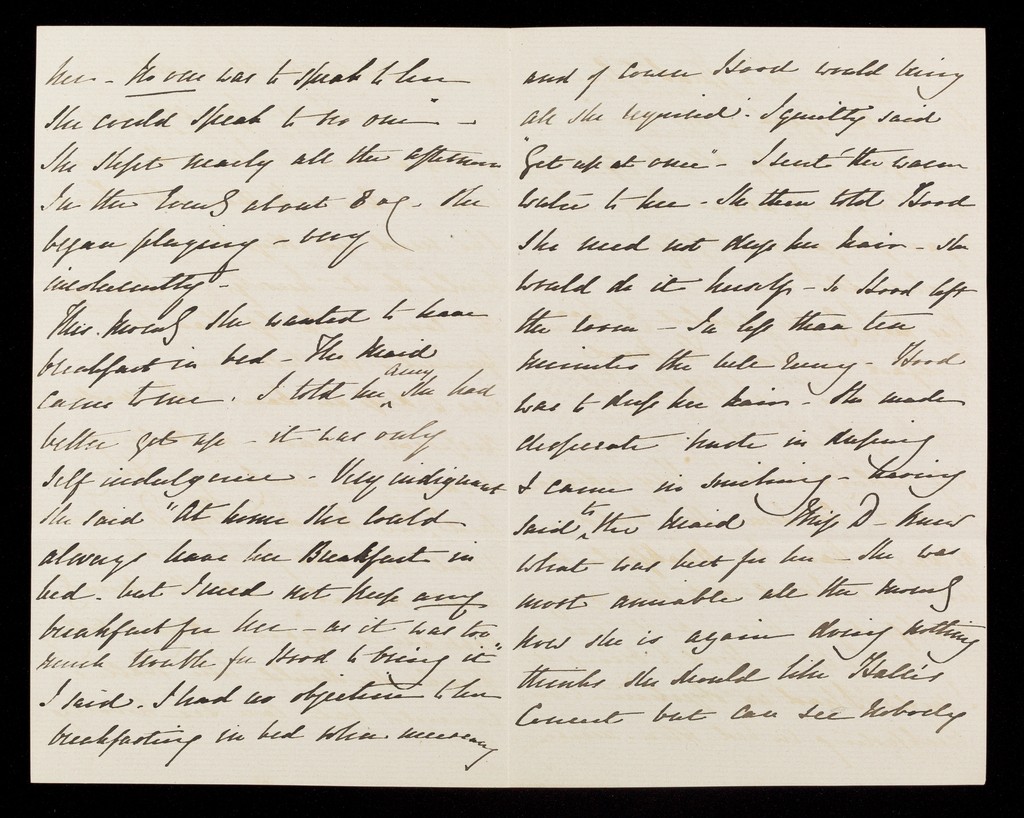 her - No one was to speak to her
She could speak to no one" -
She slept nearly all the afternoon
In the Eveng about 8 oc. She
began playing - very
incoherently -
This. Morng She wanted to have
breakfast in bed - The Maid
came to me. I told her She had
better get up - it was only
Self indulgence - Very indignant
She said "At home She could
always have her Breakfast in
bed - but I need not keep any
breakfast for her - as it was too
much trouble for Hood to bring it"
I said. I had no objection to her
breakfasting in bed when necessary
and of course Hood would bring
all she required. I quietly said
"Get up at once" - I sent the warm
water to her - She then told Hood
She need not dress her hair - She
would do it herself - So Hood left
the room - In less than ten
minutes the bell rung - Hood
was to dress her hair - She made
desperate haste in dressing
& came in smiling - having
said to the Maid Miss D - knew
what was best for her - She was
most amiable all the morng
now she is again doing nothing
thinks She should like Halle's
Concert but can see Nobody